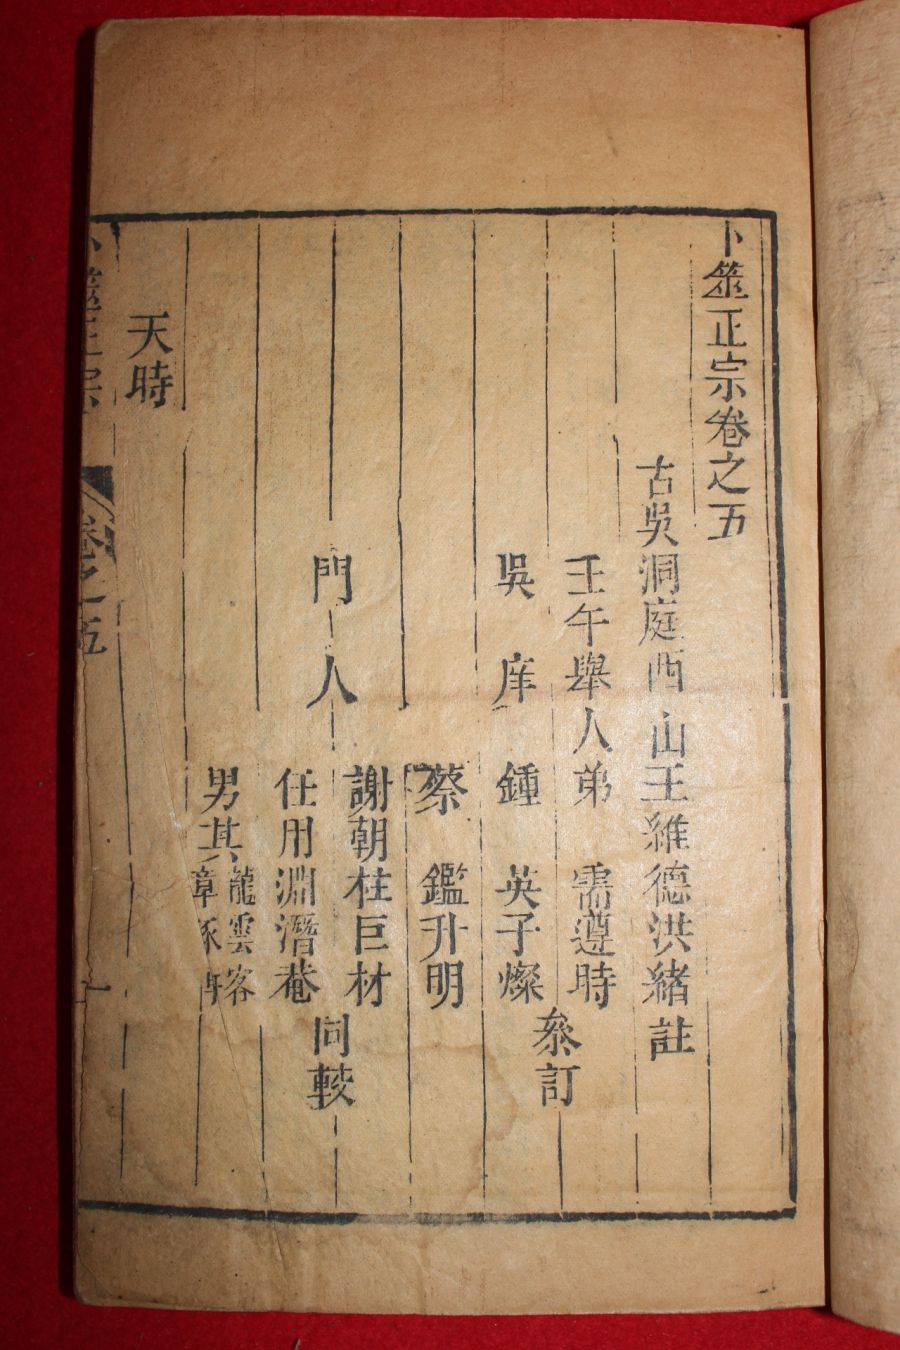 卜筮正宗卷之五
古吳洞庭西山王維德洪緒註
壬午舉人弟需遵時
吳庠鍾英子燦
參訂
蔡鑑升明
門人
謝朝柱巨材
任用淵潛菴
同較
男其龍雲客
章琢
天時
卜筮正宗
卷之五
一